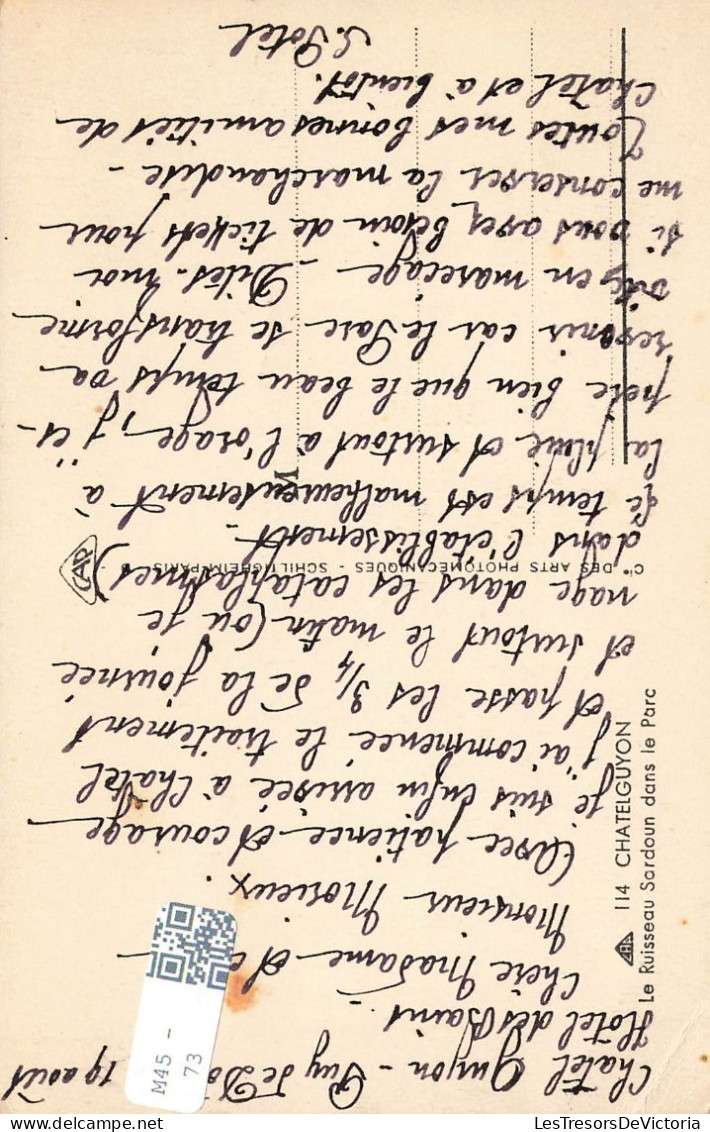 Chatel Guyon - Puy de Dô
19 août
Hôtel des Bains.
Chère Madame et
Monsieur Morieux.
Avec patience et courage
je suis enfin arrivée à Chatel
j'ai commencé le traitement
et passe les 3/4 de la journée
et surtout le matin (ou je
nage dans les cataplasmes)
dans l'établissement -
Le temps est malheureusement à
la pluie et surtout à l'orage, j'es-
père bien que le beau temps va
revenir car le Parc se transforme
en marecage - Dites-moi
si vous avez besoin de tickets pour
me conserver la marchandise -
Toutes mes bonnes amitiés de
Chatel et à bientôt.
S. Potel
114 CHATELGUYON
Le Ruisseau Sardoun dans le Parc
Cie DES ARTS PHOTOMECANIQUES - SCHILTIGHEIM-PARIS
CAP
M45 -
73
LesTresorsDeVictoria